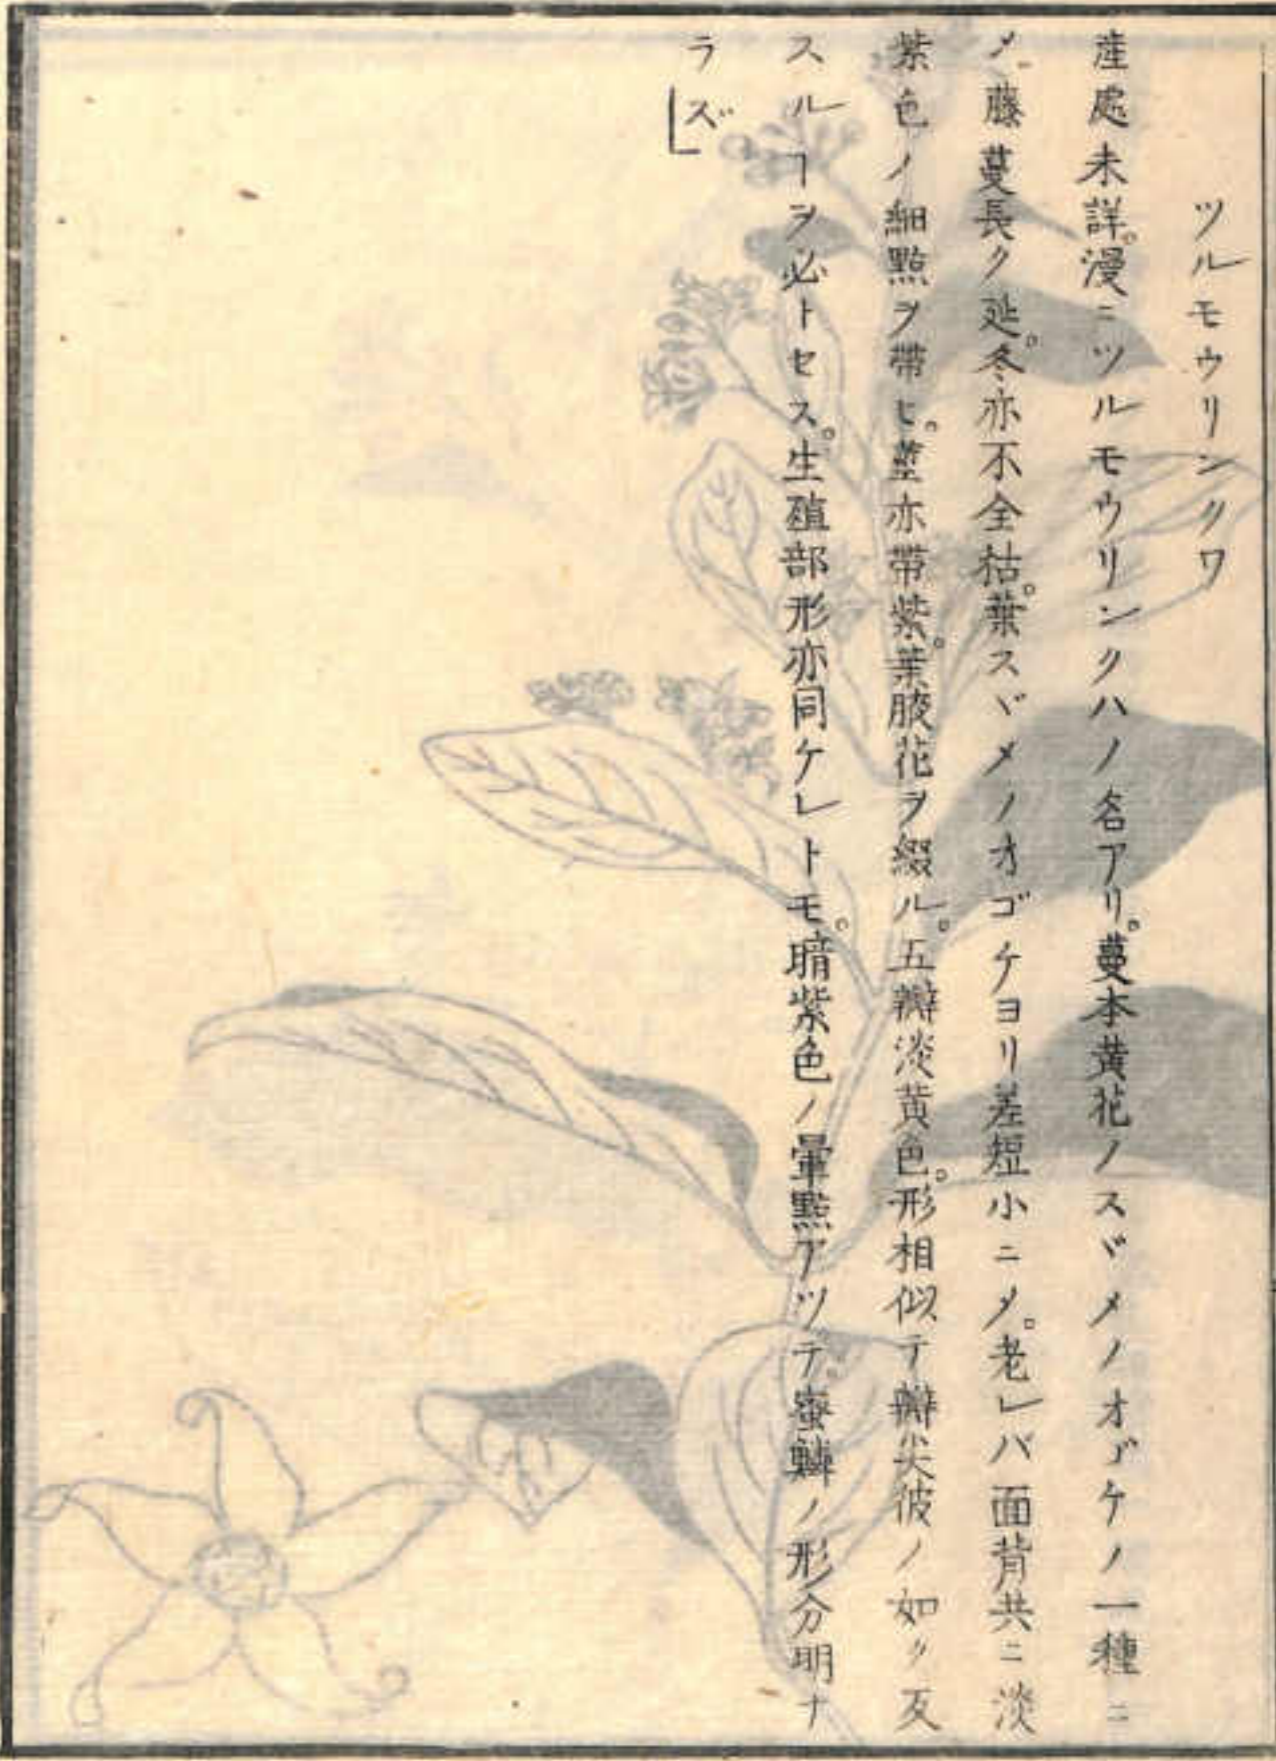 ツルモウリンクワ
産處未詳。漫ニツルモウリンクハノ名アリ。蔓本黄花ノスヾメノオゴケノ一種ニ
〆。藤蔓長ク延。冬亦不全枯。葉スヾメノオゴケヨリ差短小ニ〆。老レバ面背共ニ淡
紫色ノ細點ヲ帶ヒ。莖亦帶紫。葉腋花ヲ綴ル。五瓣淡黄色。形相似テ瓣尖彼ノ如ク反
スルヿヲ必トセス。生殖部形亦同ケレトモ。暗紫色ノ暈點アツテ。蜜鱗ノ形分明ナ
ラズ」